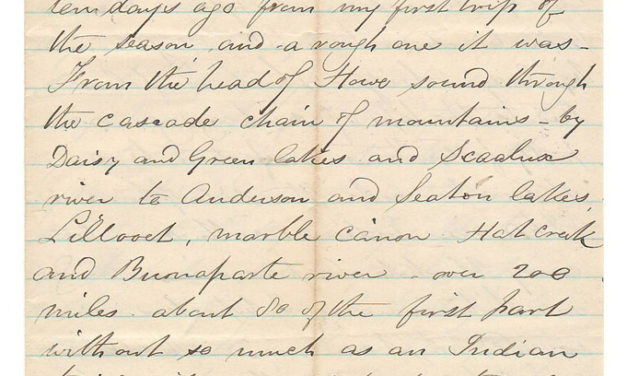 ten days ago from my first trip of
the season and a rough one it was -
From the head of Howe sound through
the cascade chain of mountains - by
Daisy and Green lakes and
river to Anderson and Seaton lakes
Lillooet, marble cañon Hat creek
and Buonaparte river - over 200
miles - about 80 of the first part
without so much as an Indian